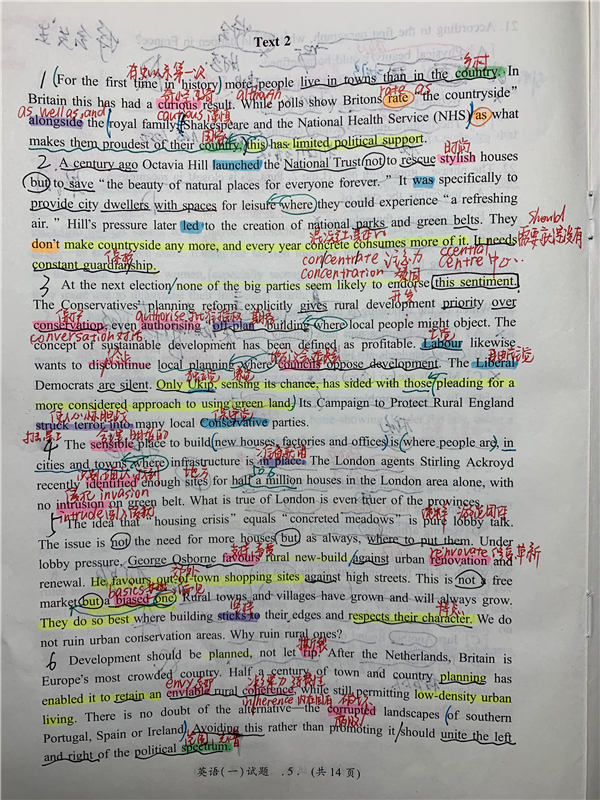 Text 2
乡村
有史以来第一次
1 For the first time in history more people live in towns than in the country. In
although
rate as
Britain this has had a curious result. While polls show Britons rate "the countryside"
as well as, and
cautious 谨慎
alongside the royal family, Shakespeare and the National Health Service (NHS) as what
makes them proudest of their country, this has limited political support.
时尚
2 A century ago Octavia Hill launched the National Trust not to rescue stylish houses
but to save "the beauty of natural places for everyone forever. " It was specifically to
provide city dwellers with spaces for leisure where they could experience "a refreshing
air. " Hill's pressure later led to the creation of national parks and green belts. They
should
don't make countryside any more, and every year concrete consumes more of it. It needs
constant guardianship.
concentrate
concentration
central
centre 中心
3 At the next election none of the big parties seem likely to endorse this sentiment.
The Conservatives' planning reform explicitly gives rural development priority over
保护
authorise
conservation, even authorising off-plan building where local people might object. The
conversation 对话
concept of sustainable development has been defined as profitable. Labour likewise
自由民主党
wants to discontinue local planning where councils oppose development. The Liberal
Democrats are silent. Only Ukip, sensing its chance, has sided with those pleading for a
more considered approach to using green land. Its Campaign to Protect Rural England
保守党
struck terror into many local Conservative parties.
4 The sensible place to build new houses, factories and offices is where people are, in
cities and towns where infrastructure is in place. The London agents Stirling Ackroyd
recently identified enough sites for half a million houses in the London area alone, with
侵犯 invasion
no intrusion on green belt. What is true of London is even truer of the provinces.
intrude
5 The idea that "housing crisis" equals "concreted meadows" is pure lobby talk.
The issue is not the need for more houses but, as always, where to put them. Under
renovate 修复 革新
lobby pressure, George Osborne favours rural new-build against urban renovation and
renewal. He favours out-of-town shopping sites against high streets. This is not a free
basics
偏见
market but a biased one. Rural towns and villages have grown and will always grow.
坚持
They do so best where building sticks to their edges and respects their character. We do
not ruin urban conservation areas. Why ruin rural ones?
6 Development should be planned, not let rip. After the Netherlands, Britain is
Europe's most crowded country. Half a century of town and country planning has
envy
enabled it to retain an enviable rural coherence, while still permitting low-density urban
inherence
living. There is no doubt of the alternative—the corrupted landscapes of southern
Portugal, Spain or Ireland. Avoiding this rather than promoting it should unite the left
and right of the political spectrum.
英语(一)试题 .5. (共14页)